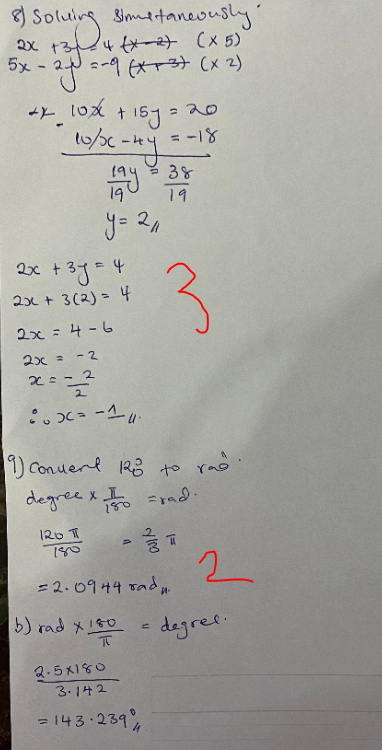 8) Solving simultaneously.
2x + 3y = 4 (x - 2) (x 5)
5x - 2y = -9 (x + 3) (x 2)
10x + 15y = 20
- 10x - 4y = -18
19y/19 = 38/19
y = 2,,
2x + 3y = 4
2x + 3(2) = 4
3
2x = 4 - 6
2x = -2
x = -2/2
∴ x = -1,,
9) Convert 120° to rad
degree x π/180 = rad.
120π/180 = 2/3 π
2
= 2.0944 rad,,
b) rad x 180/π = degree.
2.5x180/3.142
= 143.239°,,